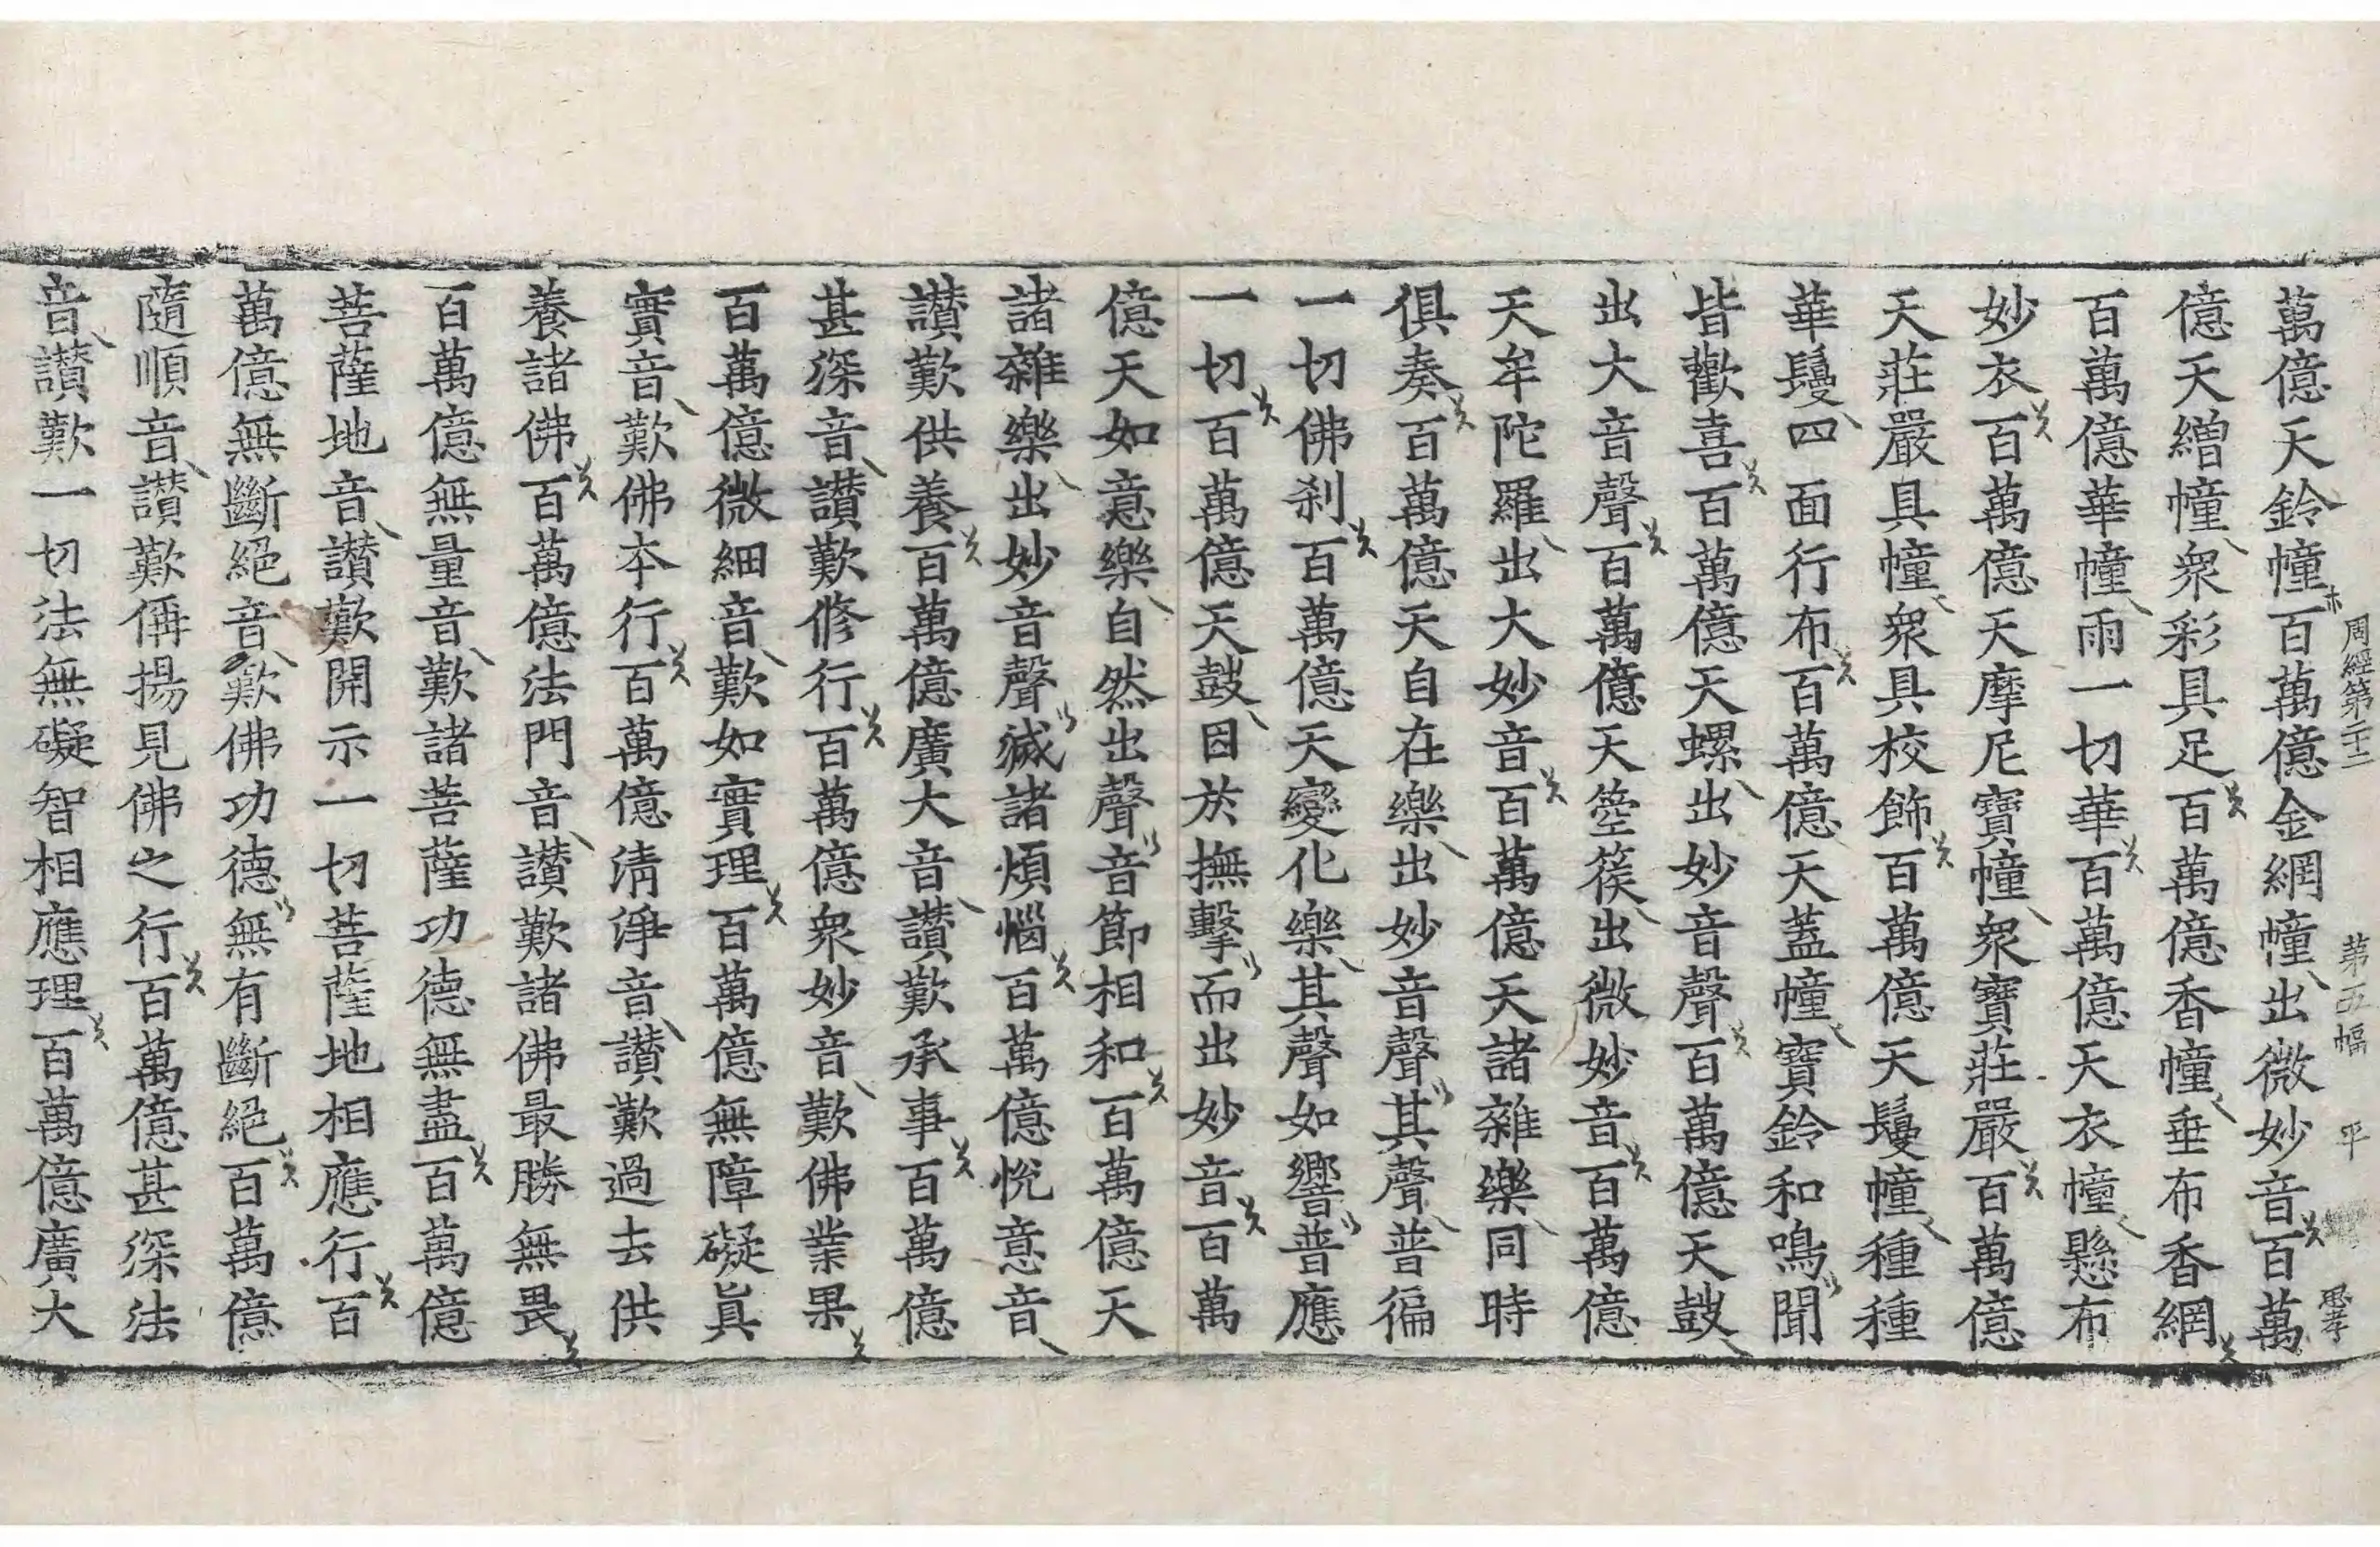 周經第二十二 第五幅 平 思孝
萬億天鈴幢百萬億金網幢出微妙音百萬
億天繒幢衆彩具足百萬億香幢垂布香網
百萬億華幢雨一切華百萬億天衣幢懸布
妙衣百萬億天摩尼寶幢衆寶莊嚴百萬億
天莊嚴具幢衆具校飾百萬億天鬘幢種種
華鬘四面行布百萬億天蓋幢寶鈴和鳴聞
皆歡喜百萬億天螺出妙音聲百萬億天鼓
出大音聲百萬億天箜篌出微妙音百萬億
天牟陀羅出大妙音百萬億天諸雜樂同時
俱奏百萬億天自在樂出妙音聲其聲普徧
一切佛刹百萬億天變化樂其聲如響普應
一切百萬億天鼓因於撫擊而出妙音百萬
億天如意樂自然出聲音節相和百萬億天
諸雜樂出妙音聲滅諸煩惱百萬億悅意音
讃歎供養百萬億廣大音讃歎承事百萬億
甚深音讃歎修行百萬億衆妙音歎佛業果
百萬億微細音歎如實理百萬億無障礙眞
實音歎佛本行百萬億清淨音讃歎過去供
養諸佛百萬億法門音讃歎諸佛最勝無畏
百萬億無量音歎諸菩薩功德無盡百萬億
菩薩地音讃歎開示一切菩薩地相應行百
萬億無斷絕音歎佛功德無有斷絕百萬億
隨順音讃歎稱揚見佛之行百萬億甚深法
音讃歎一切法無礙智相應理百萬億廣大